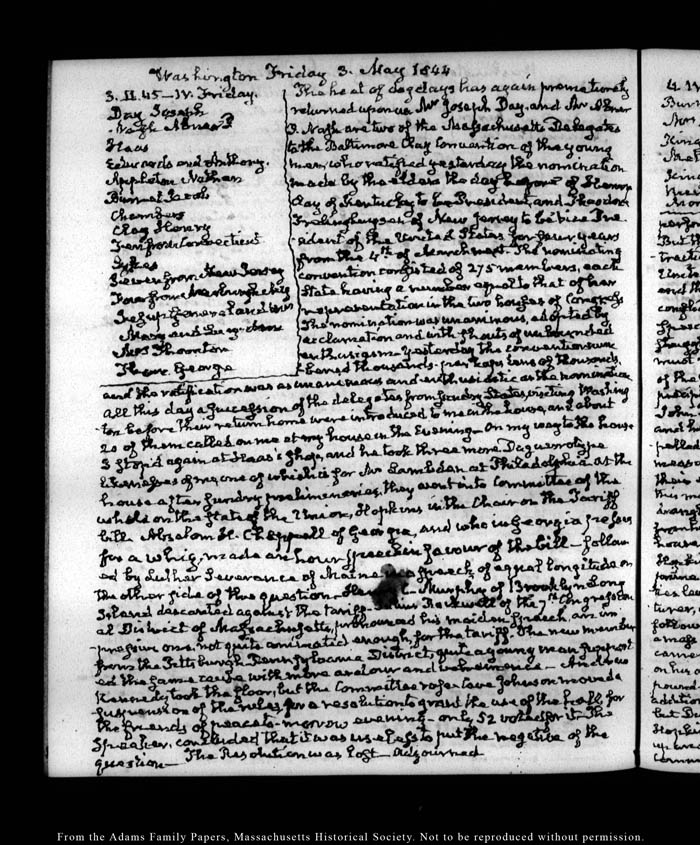 Washington Friday 3. May 1844
3. II. 45 — IV. Friday.
Day Joseph
Nagle Abner P.
Haas
Edwards and Anthony.
Appleton Nathan
Burnel Jacob
Chambers
Clay Henry
Ten from Connecticut
Sykes
Seven from New Jersey
Four from
Mary and
Mrs Thornton
Thaw. George
The heat of dog days has again prematurely
returned upon us Mr Joseph Day, and Mr Abner
P. Nagle are two of the Massachusetts Delegates
to the Baltimore Clay Convention of the young
men, who ratified yesterday the nomination
made by the elders the day before of Henry
Clay of Kentucky to be President, and Theodore
Frelinghuysen of New Jersey to be Vice Pre-
sident of the United States for four years
from the 4th of March next. The nominating
convention consisted of 275 members, each
State having a number equal to that of her
representation in the two houses of Congress
The nomination was unanimous, adopted by
acclamation and with shouts of unbounded
enthusiasm. Yesterday the convention num-
bered thousands. perhaps tens of thousands,
and the ratification was as unanimous and enthusiastic as the nomination
All this day a succession of the delegates from sundry States, visiting Washing-
ton before their return home were introduced to me in the house, and about
20 of them called on me at my house in the Evening — On my way to the house
I stop'd again at Haas's shop, and he took three more Daguerrotype
likenesses of me, one of which is for Mr Lambdin at Philadelphia. At the
house after sundry preliminaries, they went into Committee of the
whole on the State of the Union, Hopkins in the Chair on the Tariff
bill. Absalom H. Chappell of Georgia, and who in Georgia
for a whig, made an hour speech in favour of the bill — follow-
ed by Luther Severance of Maine a speech of equal longitude on
the other side of the question — Murphy of Brooklyn Long
Island descanted against the tariff — Julius Rockwell of the 7th Congression-
al District of Massachusetts, pronounced his maiden speech, an im-
pressive one, not quite animated enough, for the tariff. The new member
from the Pittsburgh Pennsylvania District, quite a young man support-
ed the same cause with more ardour and vehemence — Andrew
Kennedy took the floor, but the Committee rose. Cave Johnson moved a
suspension of the rules, for a resolution to grant the use of the hall for
the friends of peace to-morrow evening — only 52 votes for it. The
Speaker, concluded that it was useless to put the negative of the
question — The Resolution was lost — Adjourned
From the Adams Family Papers, Massachusetts Historical Society. Not to be reproduced without permission.